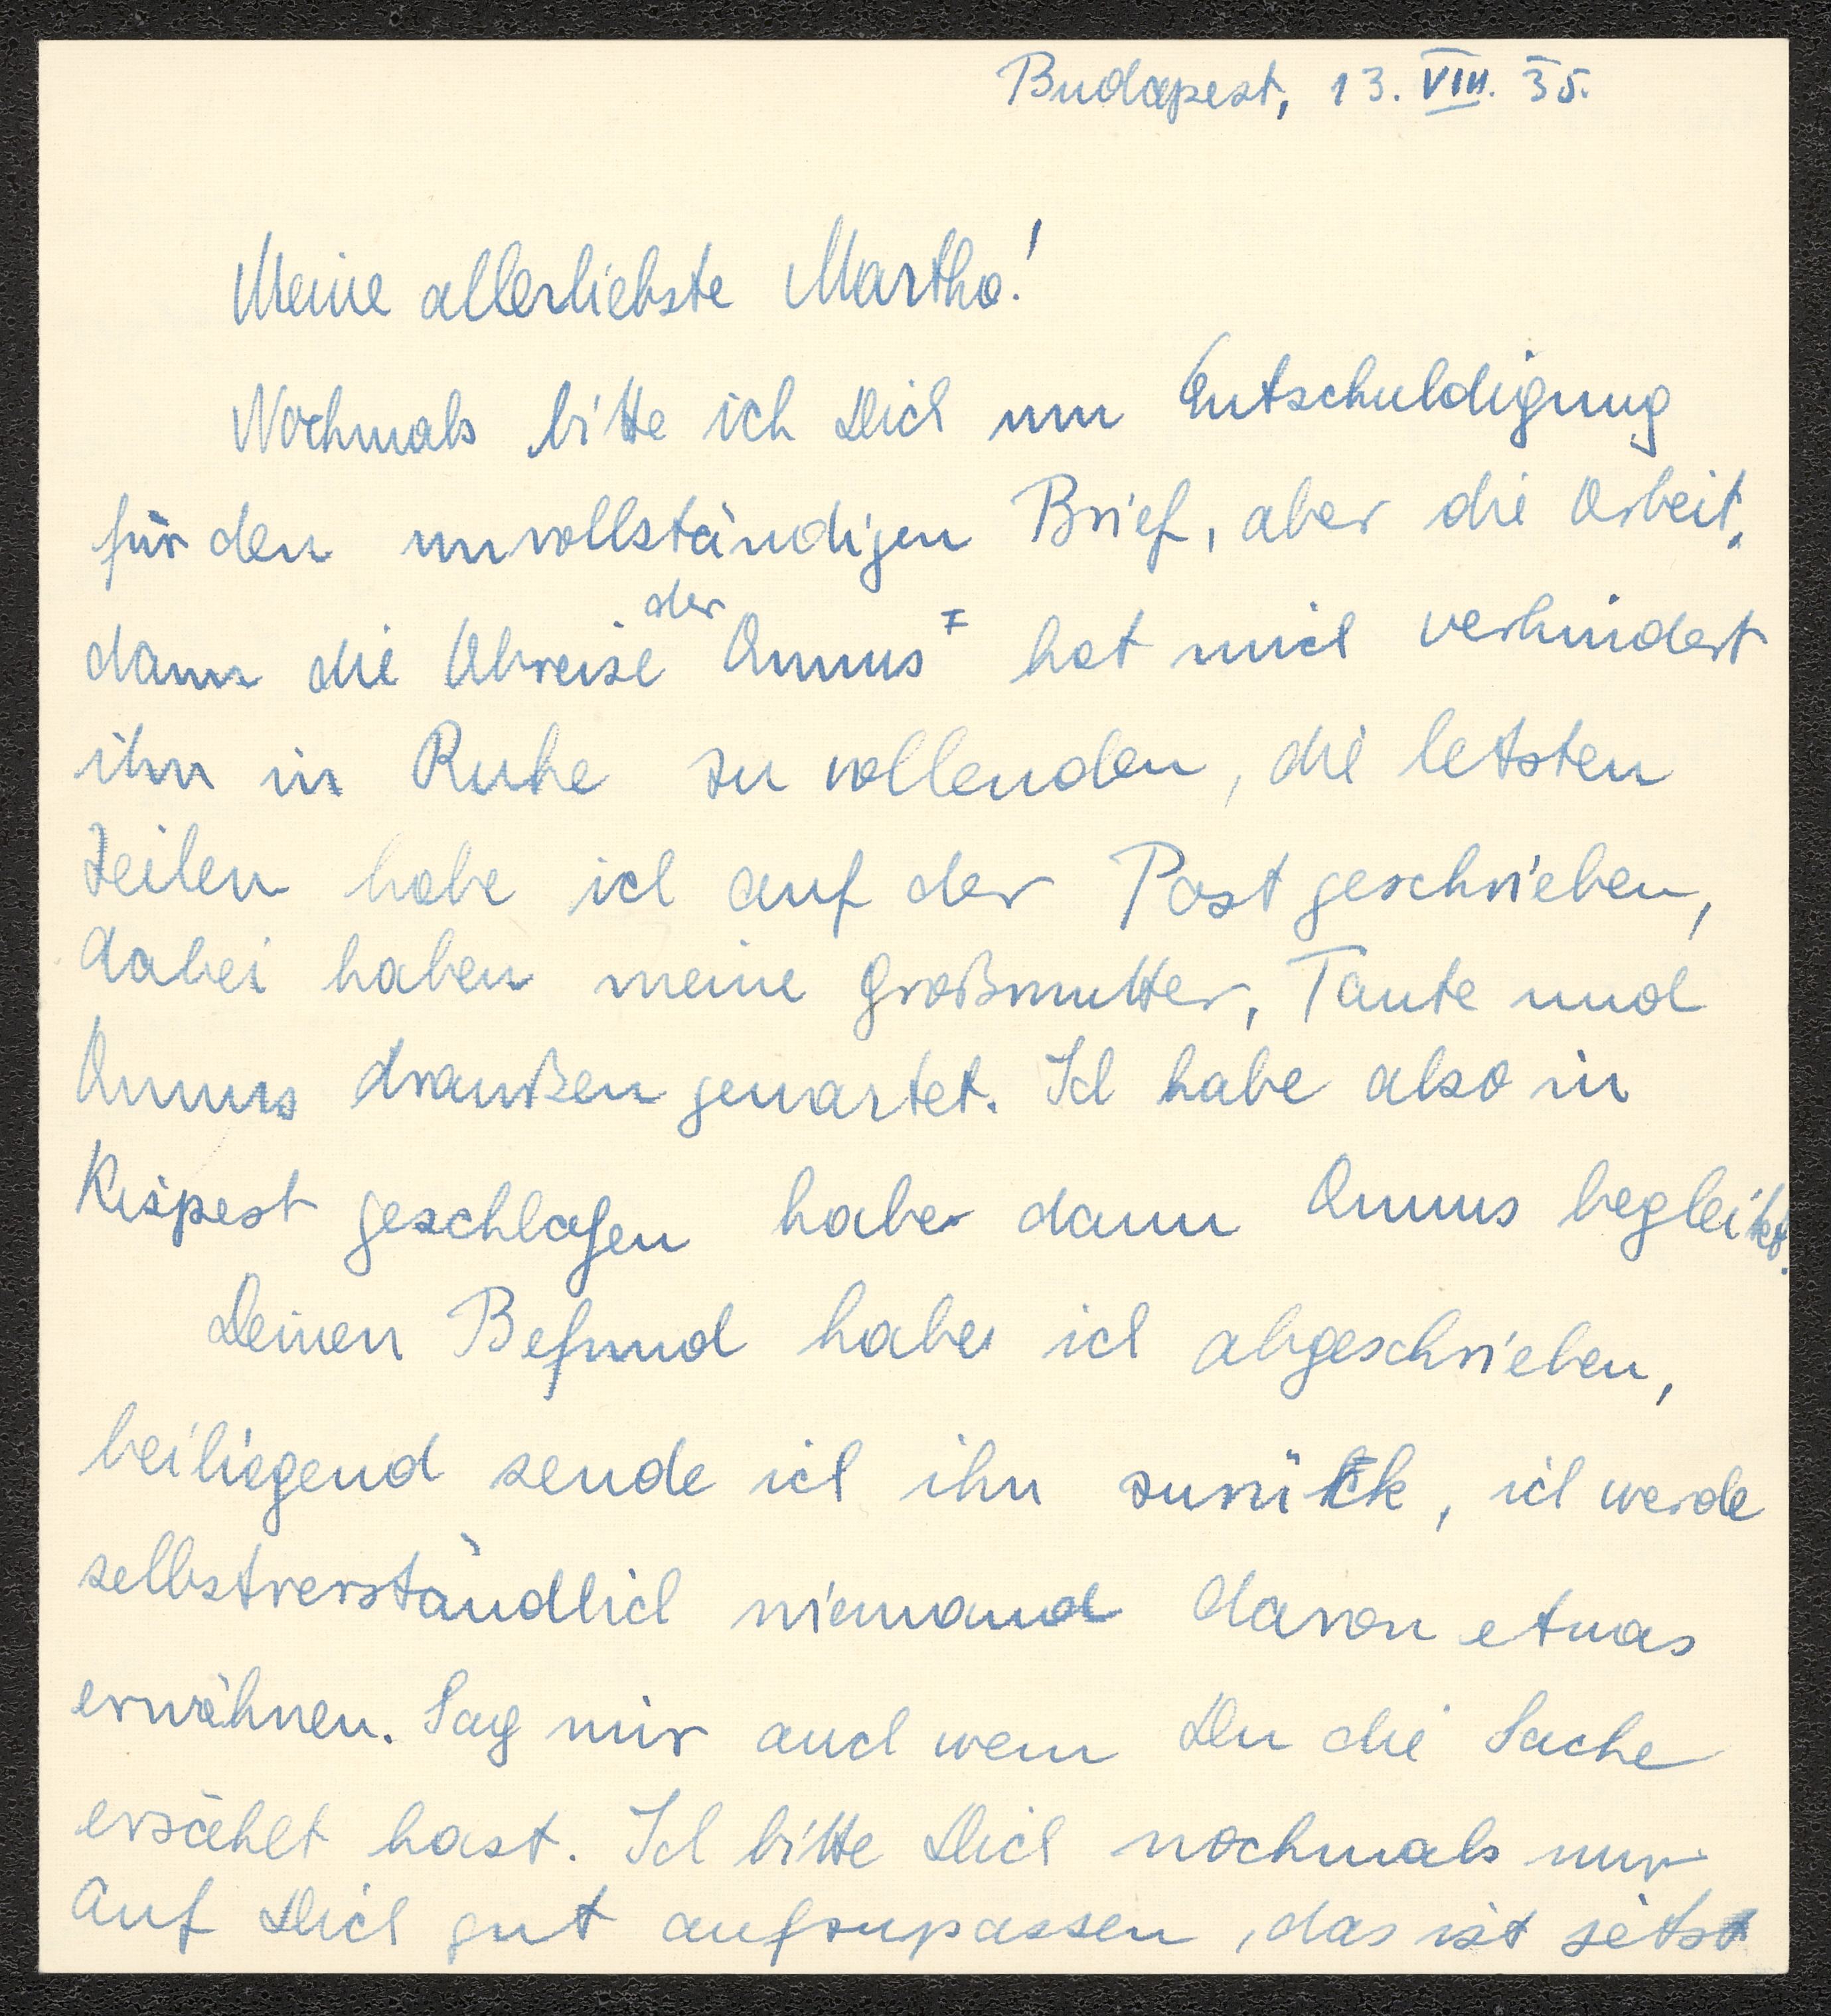 Budapest, 13. VIII. 35.
Meine allerliebste Martha!
Nochmals bitte ich Dich um Entschuldigung
für den unvollständigen Brief, aber die Arbeit,
dann die Abreise der Annus hat mich verhindert
ihn in Ruhe zu vollenden, die letzten
Zeilen habe ich auf der Post geschrieben,
dabei haben meine Großmutter, Tante und
Annus draußen gewartet. Ich habe also in
Kispest geschlafen habe dann Annus begleitet.
Deinen Befund habe ich abgeschrieben,
beiliegend sende ich ihn zurück, ich werde
selbstverständlich niemand davon etwas
erwähnen. Sag mir auch wem Du die Sache
erzählt hast. Ich bitte Dich nochmals nur
auf Dich gut aufzupassen, das ist jetzt